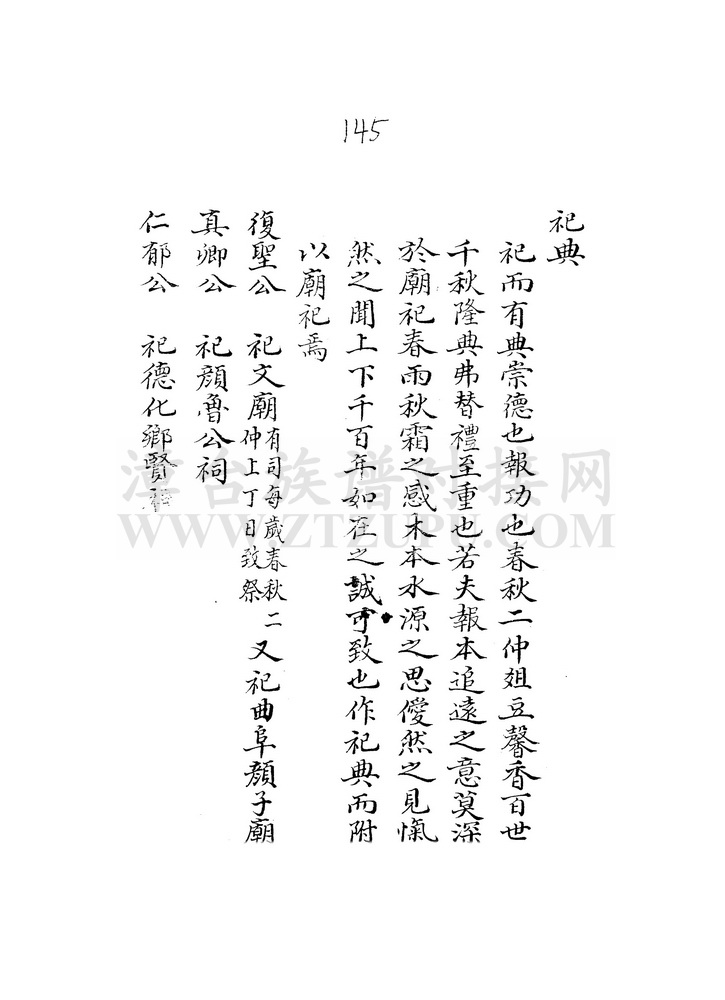 145
祀典
祀而有典崇德也報功也春秋二仲俎豆馨香百世
千秋隆典弗替禮至重也若夫報本追遠之意莫深
於廟祀春雨秋霜之感木本水源之思僾然之見愾
然之聞上下千百年如在之誠可致也作祀典而附
以廟祀焉
復聖公 祀文廟有司每歲春秋二仲上丁日致祭 又祀曲阜顏子廟
真卿公 祀顏魯公祠
仁郁公 祀德化鄉賢祠
津台族谱对接网
WWW.ZTZUPU.COM